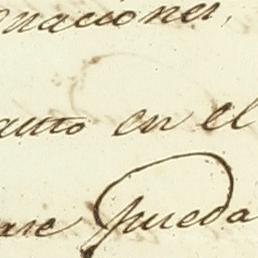 naciones,
auto en el
are pueda